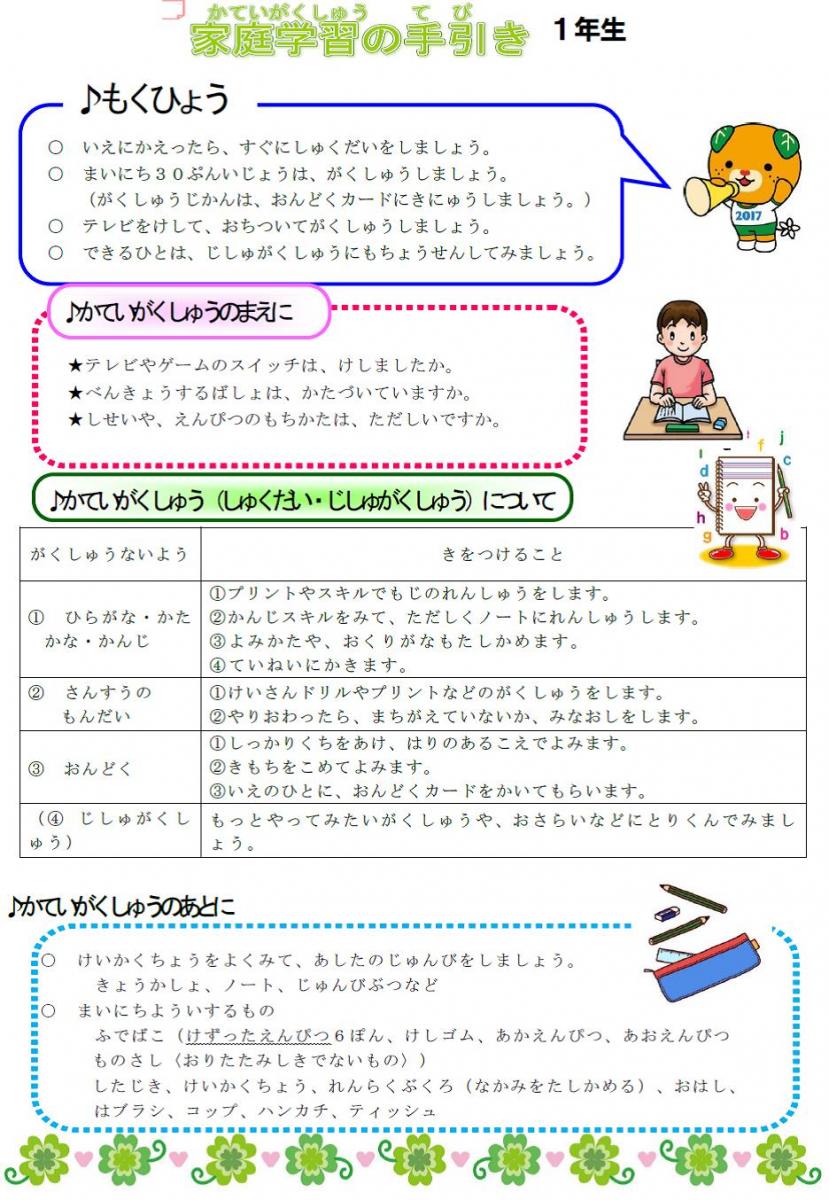 かていがくしゅう　てび
家庭学習の手引き　１年生
♪もくひょう
○　いえにかえったら、すぐにしゅくだいをしましょう。
○　まいにち３０ぷんいじょうは、がくしゅうしましょう。
（がくしゅうじかんは、おんどくカードにきにゅうしましょう。）
○　テレビをけして、おちついてがくしゅうしましょう。
○　できるひとは、じしゅがくしゅうにもちょうせんしてみましょう。
2017
♪かていがくしゅうのまえに
★テレビやゲームのスイッチは、けしましたか。
★べんきょうするばしょは、かたづいていますか。
★しせいや、えんぴつのもちかたは、ただしいですか。
♪かていがくしゅう（しゅくだい・じしゅがくしゅう）について
f j
d c
h
g b
がくしゅうないよう　きをつけること
①　ひらがな・かた
かな・かんじ
①プリントやスキルでもじのれんしゅうをします。
②かんじスキルをみて、ただしくノートにれんしゅうします。
③よみかたや、おくりがなもたしかめます。
④ていねいにかきます。
②　さんすうの
もんだい
①けいさんドリルやプリントなどのがくしゅうをします。
②やりおわったら、まちがえていないか、みなおしをします。
③　おんどく
①しっかりくちをあけ、はりのあるこえでよみます。
②きもちをこめてよみます。
③いえのひとに、おんどくカードをかいてもらいます。
（④　じしゅがくし
ゅう）
もっとやってみたいがくしゅうや、おさらいなどにとりくんでみまし
ょう。
♪かていがくしゅうのあとに
○　けいかくちょうをよくみて、あしたのじゅんびをしましょう。
きょうかしょ、ノート、じゅんびぶつなど
○　まいにちよういするもの
ふでばこ（けずったえんぴつ６ぽん、けしゴム、あかえんぴつ、あおえんぴつ
ものさし〈おりたたみしきでないもの〉）
したじき、けいかくちょう、れんらくぶくろ（なかみをたしかめる）、おはし、
はブラシ、コップ、ハンカチ、ティッシュ